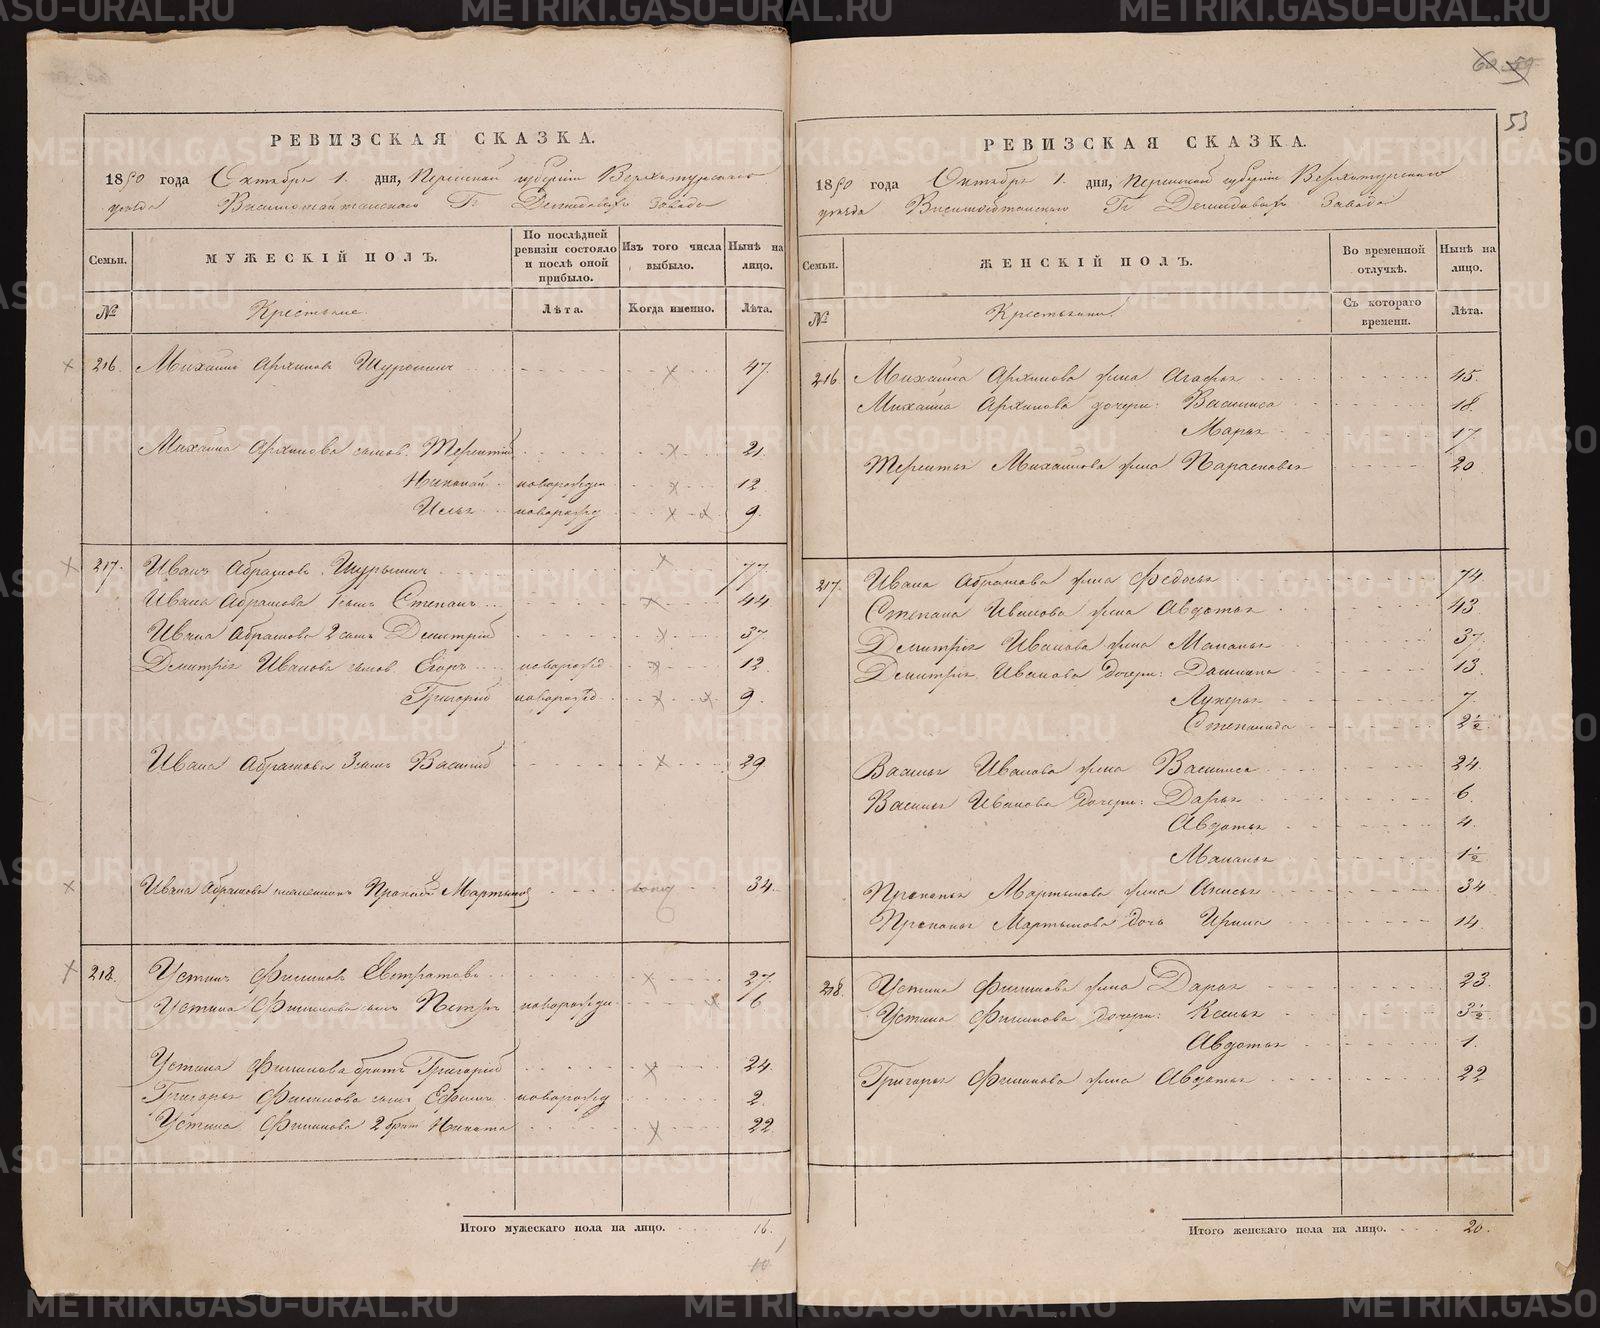 РЕВИЗСКАЯ СКАЗКА.
1850 года Октября 1. дня, Пермской губернии Верхотурского
уезда Висимошайтанского Гг Демидовых завода
Семьи. МУЖЕСКІЙ ПОЛЪ. По послѣдней ревизіи состояло и послѣ оной прибыло. Изъ того числа выбыло. Нынѣ на лицо.
№ Крестьяне. Лѣта. Когда именно. Лѣта.
216. Михаилъ Архиповъ 47.
Михаила Архипова сынов. Терентій 21.
Николай новорожден 12
Илья новорожд 9.
217. Иванъ Абрамовъ 77
Ивана Абрамова 1 сынъ Степанъ 44
Ивана Абрамова 2 сынъ Дмитрій 37
Дмитрія Иванова сынов. Егоръ новорожд 12
Григорій новорожд 9.
Ивана Абрамова 3 сынъ Василій 29
Ивана Абрамова Мартынов 34.
218. Устинъ Филиповъ Евстратовъ 27.
Устина Филипова сынъ Петръ новорожден 6
Устина Филипова братъ Григорій 24.
Григорья Филипова сынъ Ефимъ новорожд 2.
Устина Филипова 2 брат Никита 22
Итого мужескаго пола на лицо. 16.
60 59
53
РЕВИЗСКАЯ СКАЗКА.
1850 года Октября 1. дня, Пермской губернии Верхотурского
уезда Висимошайтанского Гг Демидовых завода
Семьи. ЖЕНСКІЙ ПОЛЪ. Во временной отлучкѣ. Нынѣ на лицо.
№ Съ котораго времени. Лѣта.
216. Михаила Архипова жена Агафья 45.
Михаила Архипова дочери: Василиса 18.
Марья 17.
Терентья Михайлова жена Парасковья 20
217. Ивана Абрамова жена Федосья 74
Степана Иванова жена Авдотья 43.
Дмитрія Иванова жена Маланья 37.
Дмитрія Иванова дочери: 13.
Лукерья 7.
Степанида 2 1/2
Василья Иванова жена Василиса 24.
Василья Иванова дочери: Дарья 6.
Авдотья 4.
Маланья 1 1/2
Прокопья Мартынова жена Анисья 34
Прокопья Мартынова дочь Ирина 14.
218. Устина Филипова жена Дарья 23.
Устина Филипова дочери: 3 1/2
Авдотья 1.
Григорья Филипова жена Авдотья 22
Итого женскаго пола на лицо. 20.
METRIKI.GASO-URAL.RU